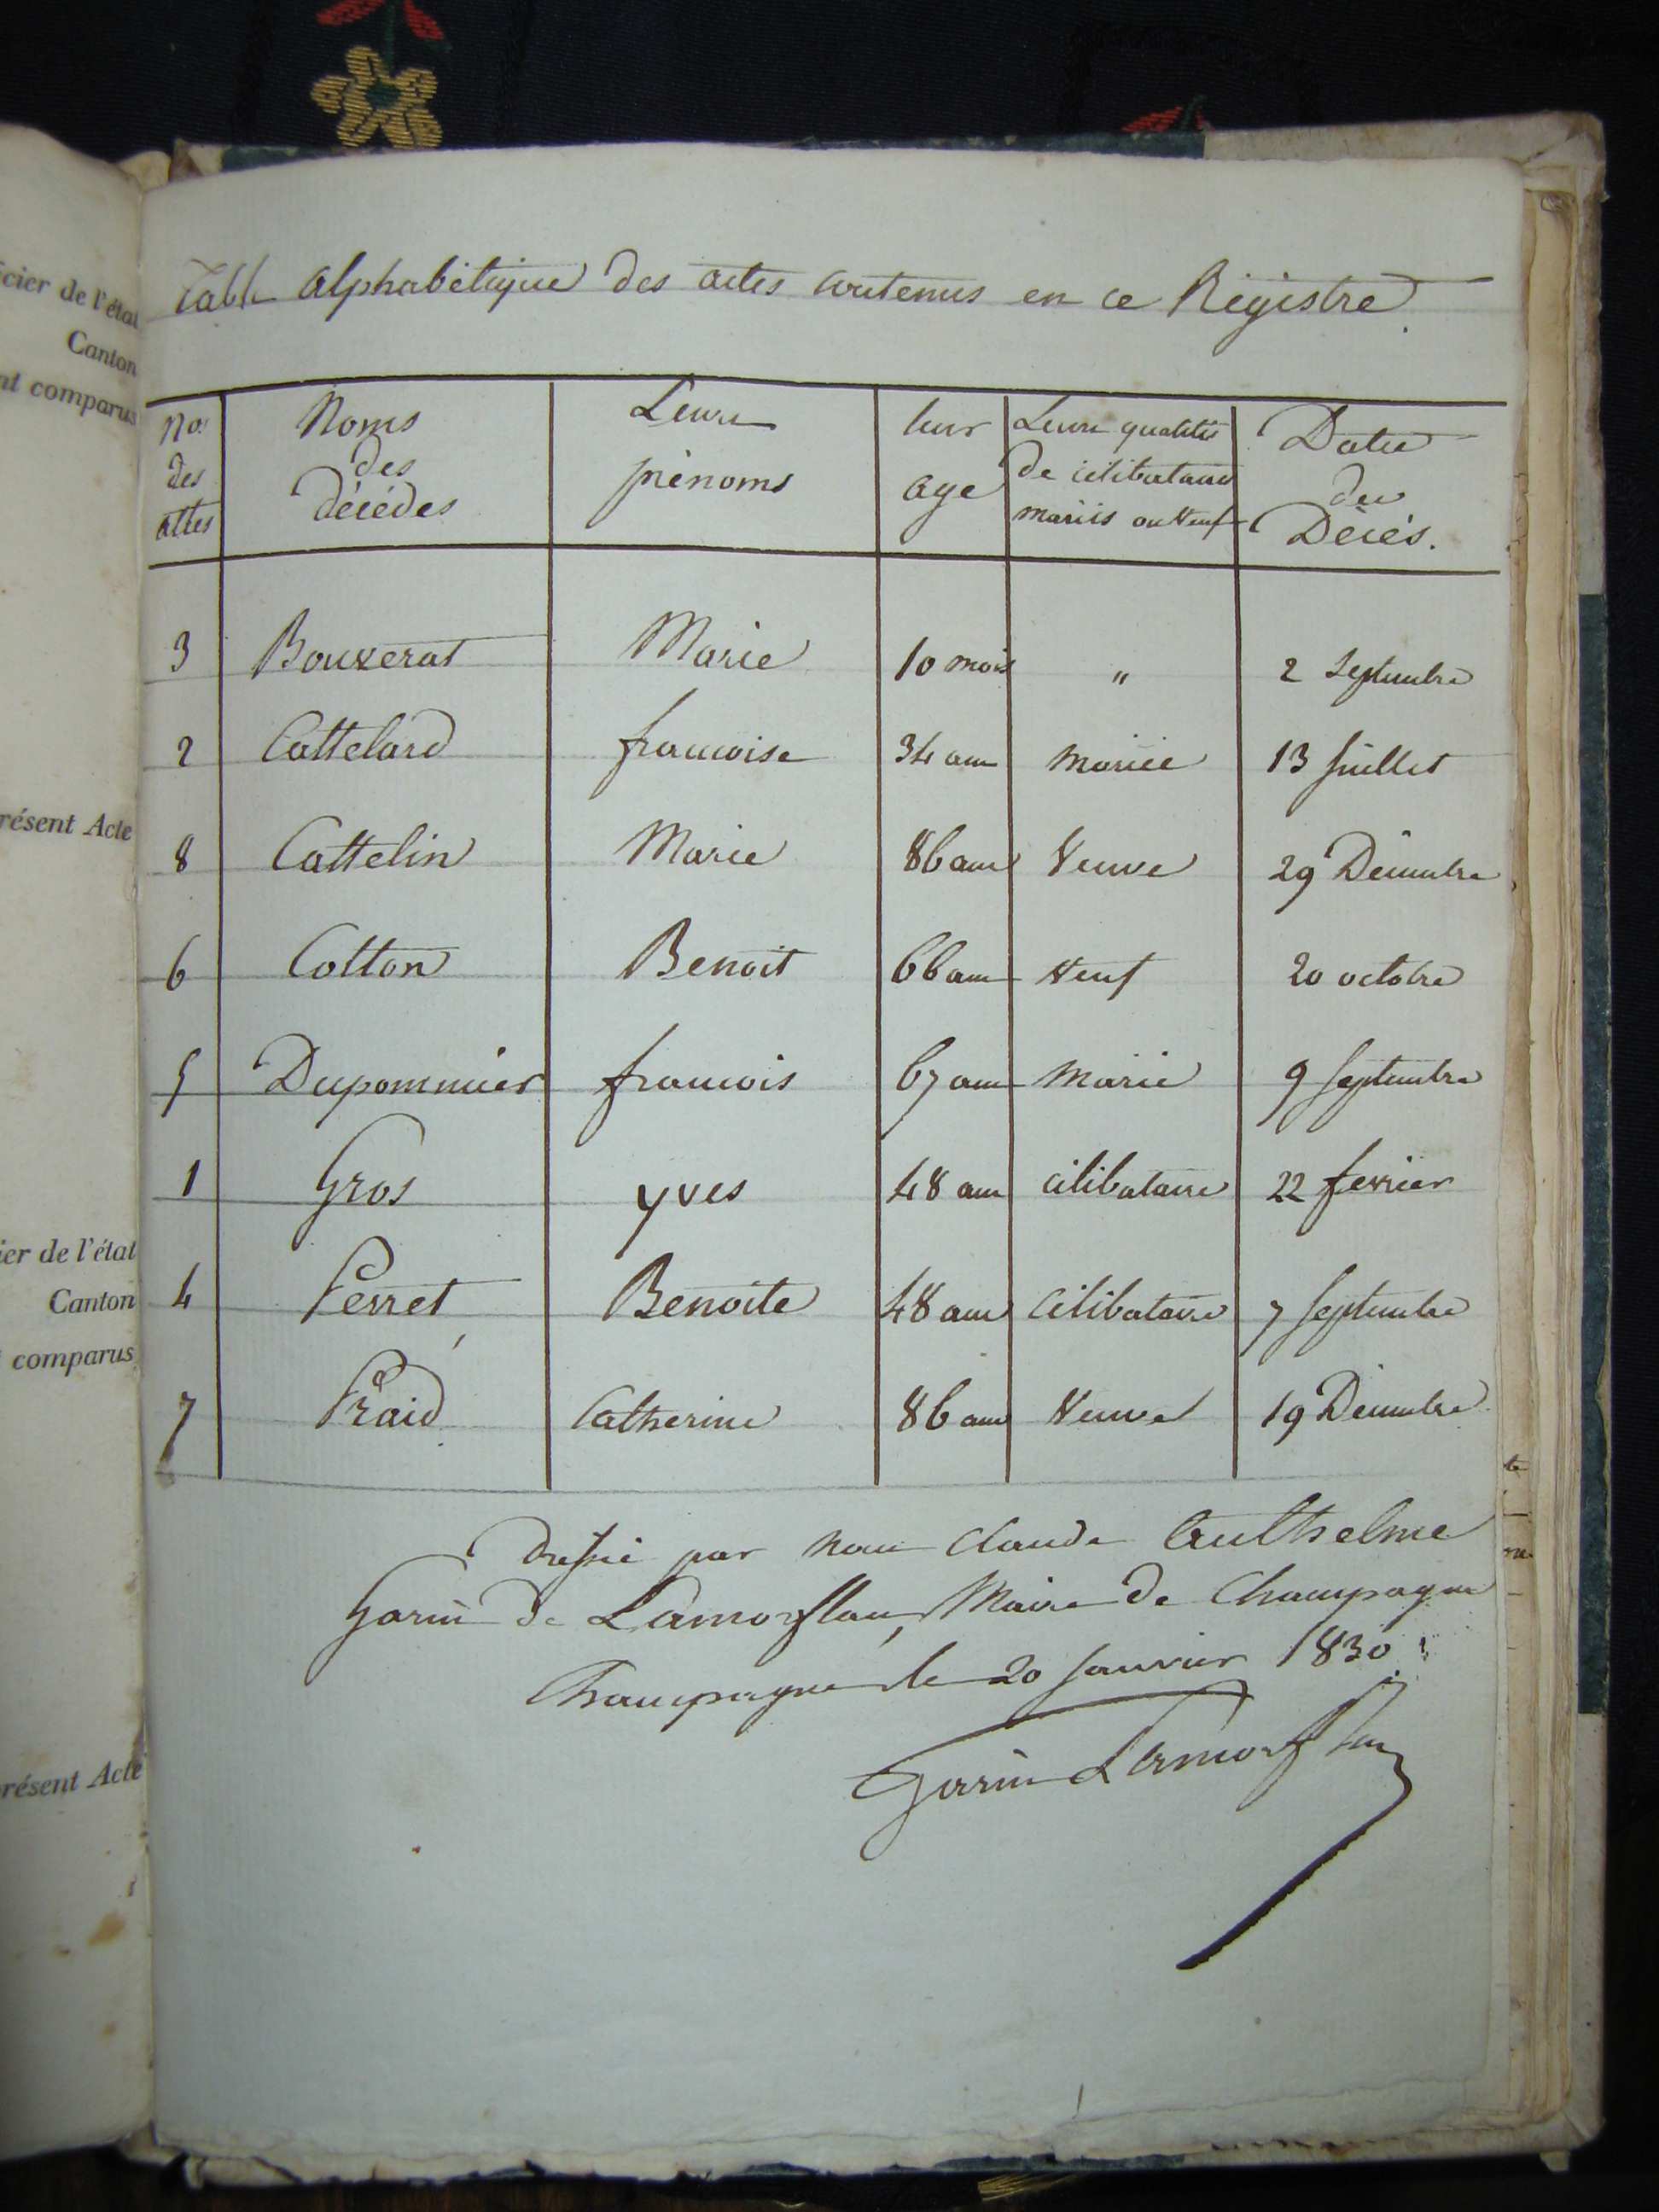 cier de l'état
Canton
nt comparus
résent Acte
ier de l'état
Canton
comparus
résent Acte
Table alphabétique des actes contenus en ce Régistre.
Nos des actes | Noms des décédés | Leurs prénoms | leur age | Leurs qualités de célibataires mariés ou Veufs | Dates des Décés.
3 | Bouzerat | Marie | 10 mois | " | 2 Septembre
2 | Cattelard | francoise | 34 ans | mariée | 13 Juillet
8 | Cattelin | Marie | 86 ans | Veuve | 29 Décembre
6 | Cotton | Benoit | 66 ans | Veuf | 20 octobre
5 | Dupommier | francois | 67 ans | marié | 9 Septembre
1 | Gros | yves | 48 ans | célibataire | 22 fevrier
4 | Perret | Benoite | 48 ans | Célibataire | 7 Septembre
7 | Praid | Catherine | 86 ans | Veuve | 19 Décembre
Dressé par nous Claude Anthelme
Garin de Lamorflan, Maire de Champagne
Champagne le 20 Janvier 1830
Garin Lamorflan